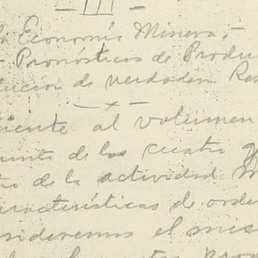 - III -
Economía Minera,-
Pronósticos de Produ
lución de verdaden Res
- x -
ciente al volumen
punto de los cuatro g
de la actividad M
aracterísticas de orde
sideremos el mis